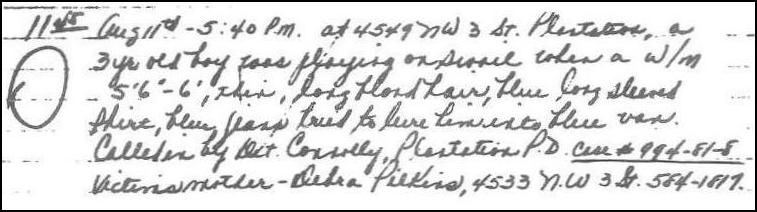 1145 Aug 11th - 5:40 P.M. at 4549 NW 3 St. Plantation, a
3 yr old boy was playing on when a w/m
5'6"-6', thin, long blond hair, blue long sleeved
shirt, blue jeans tried to lure him into blue van.
Called in by Det. Connolly, Plantation P.D. case # 994-81-8
Victims mother - Debra Pilkins, 4533 N.W 3 St. 584-1817.